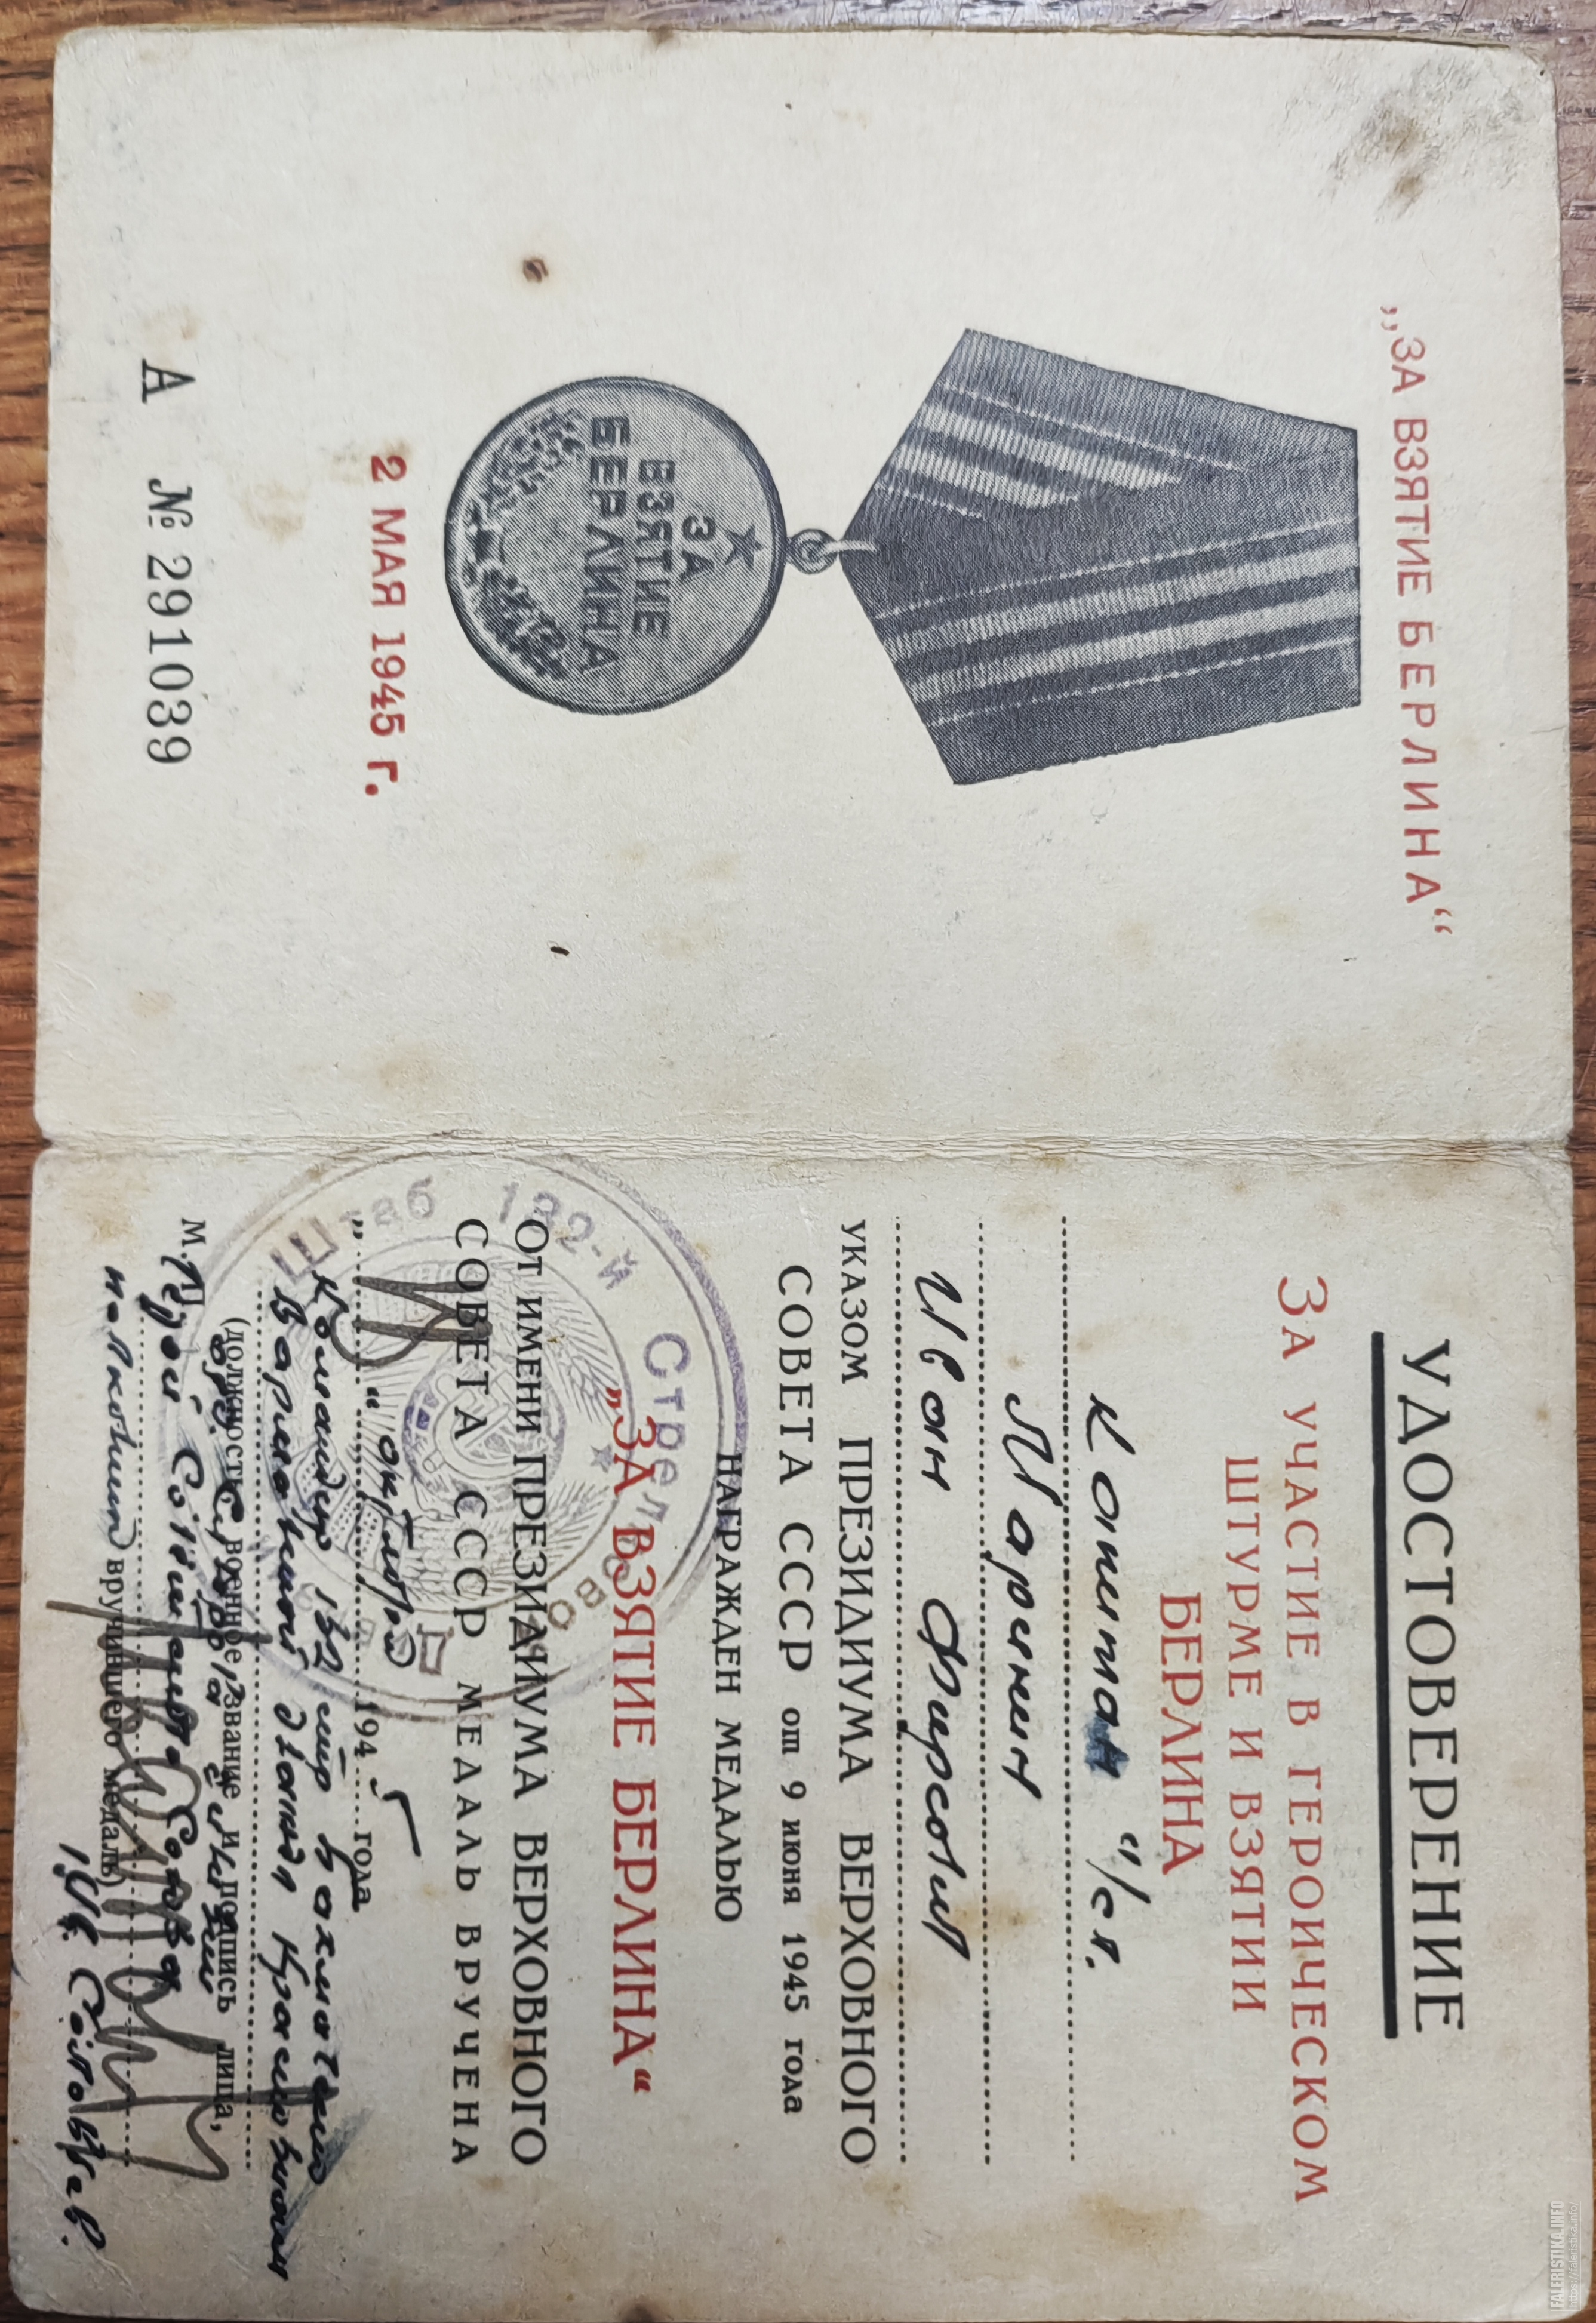 „ЗА ВЗЯТИЕ БЕРЛИНА“
ЗА
ВЗЯТИЕ
БЕРЛИНА
2 МАЯ 1945 г.
А № 291039
УДОСТОВЕРЕНИЕ
ЗА УЧАСТИЕ В ГЕРОИЧЕСКОМ
ШТУРМЕ И ВЗЯТИИ
БЕРЛИНА
Капитан
Ларекин
Иван Фирсович
УКАЗОМ ПРЕЗИДИУМА ВЕРХОВНОГО
СОВЕТА СССР от 9 июня 1945 года
НАГРАЖДЕН МЕДАЛЬЮ
„ЗА ВЗЯТИЕ БЕРЛИНА“
ОТ ИМЕНИ ПРЕЗИДИУМА ВЕРХОВНОГО
СОВЕТА СССР МЕДАЛЬ ВРУЧЕНА
„ “ октября 1945 года
Командир 132 стр Бахмачской
Варшавской дважды Краснознам
(должность, военное звание и подпись лица,
орд. Суворова
М. П. Герой Советского Союза
полковник
вручившего медаль)
Штаб 132-й Стрелковой
FALERISTIKA.INFO
https://faleristika.info/